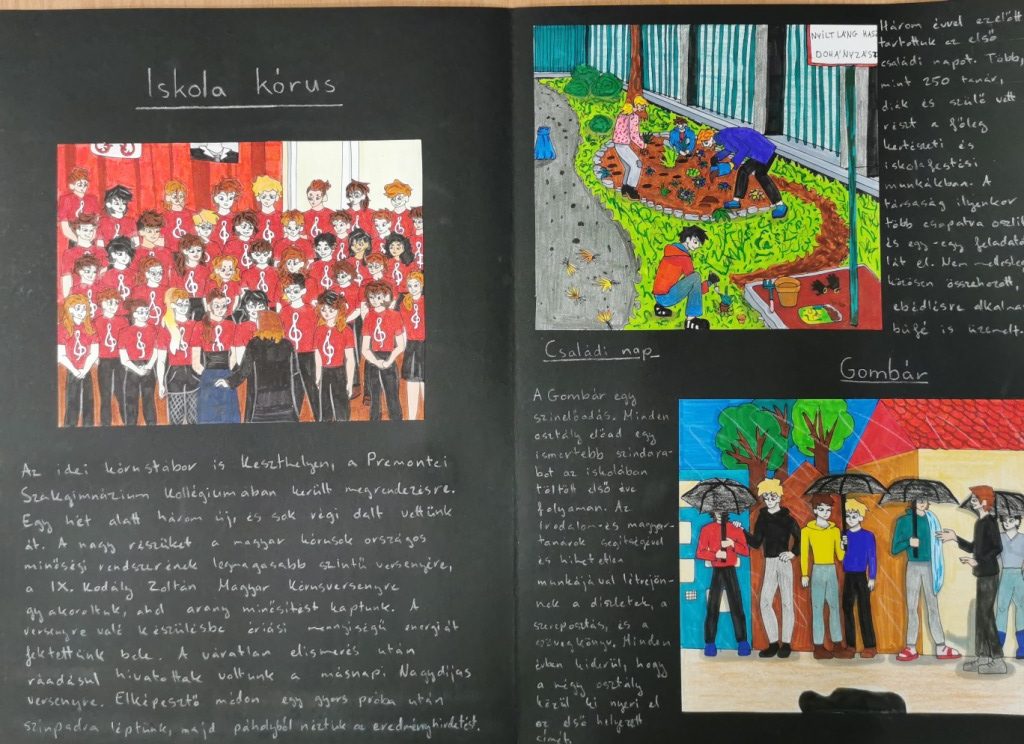 Iskola kórus
Az idei kórustábor is Keszthelyen, a Premontei
Szakgimnázium Kollégiumában került megrendezésre.
Egy hét alatt három új, és sok régi dalt vettünk
át. A nagy részüket a magyar kórusok országos
minősítési rendszerének legmagasabb szintű versenyére,
a IX. Kodály Zoltán Magyar Kórusversenyre
gyakoroltuk, ahol arany minősítést kaptunk. A
versenyre való készülésbe óriási mennyiségű energiát
fektettünk bele. A váratlan elismerés után
ráadásul hivatottak voltunk a másnapi Nagydíjas
versenyre. Elképesztő módon egy gyors próba után
színpadra léptünk, majd páholyból néztük az eredményhirdetést.
NYÍLT LÁNG HASZ
DOHÁNYZÁS
Három évvel ezelőtt
tartottuk az első
családi napot. Több,
mint 250 tanár,
diák és szülő vett
részt a főleg
kertészeti és
iskolafestési
munkákban. A
társaság ilyenkor
több csapatra oszlik
és egy-egy feladatot
lát el. Nem mellesleg
közösen összehozott,
ebédlésre alkalmas
büfé is üzemelt.
Családi nap
Gombár
A Gombár egy
színelőadás. Minden
osztály előad egy
ismertebb színdara-
bot az iskolában
töltött első éve
folyamán. Az
Irodalom-és magyar-
tanárok segítségével
és hihetetlen
munkájával létrejön-
nek a díszletek, a
szereposztás, és a
szövegkönyv. Minden
évben kiderül, hogy
a négy osztály
közül ki nyeri el
az első helyezett
címét.